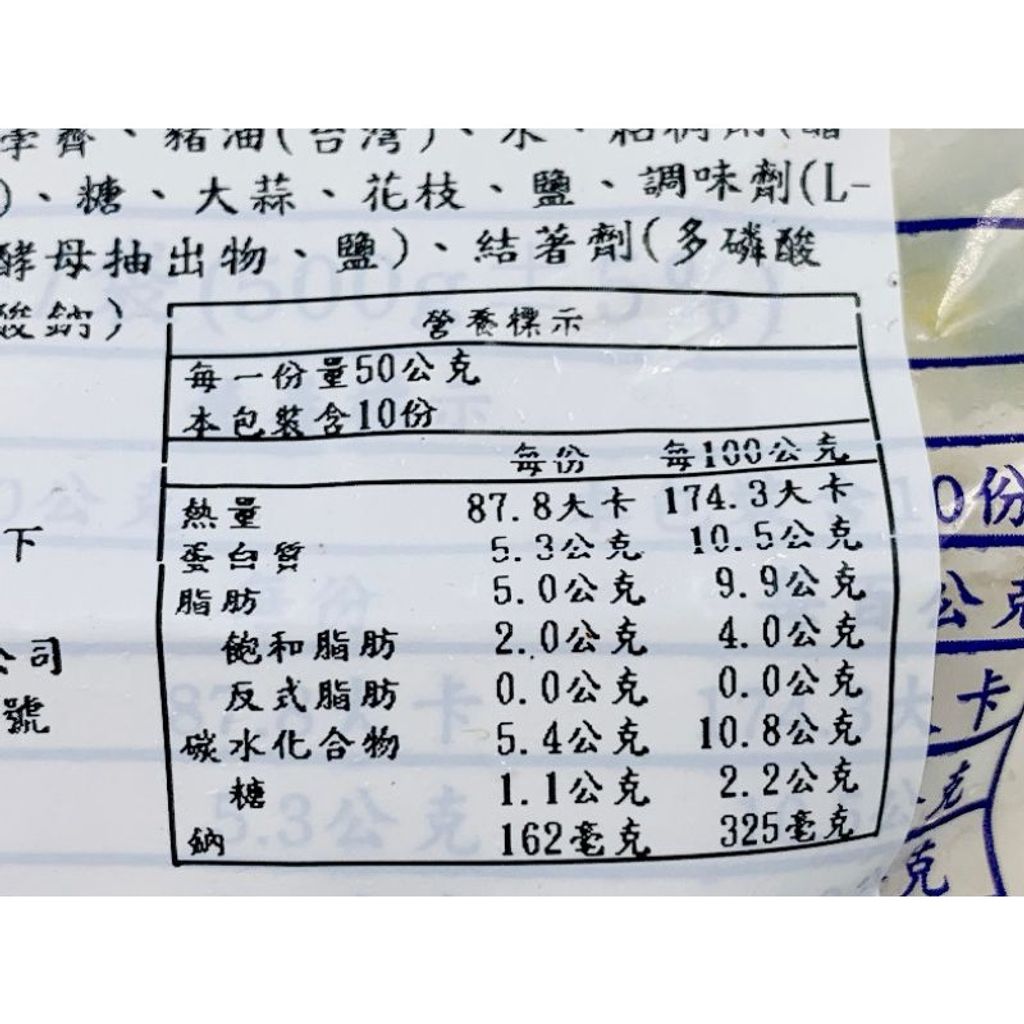 荸薺、豬油(台灣)、水、粘稠劑(醋
)、糖、大蒜、花枝、鹽、調味劑(L-
酵母抽出物、鹽)、結著劑(多磷酸
酸鈉)
營養標示
每一份量50公克
本包裝含10份
每份 每100公克
熱量 87.8大卡 174.3大卡
蛋白質 5.3公克 10.5公克
脂肪 5.0公克 9.9公克
飽和脂肪 2.0公克 4.0公克
反式脂肪 0.0公克 0.0公克
碳水化合物 5.4公克 10.8公克
糖 1.1公克 2.2公克
鈉 162毫克 325毫克
下
公司
號
0份
公克
卡
克
克